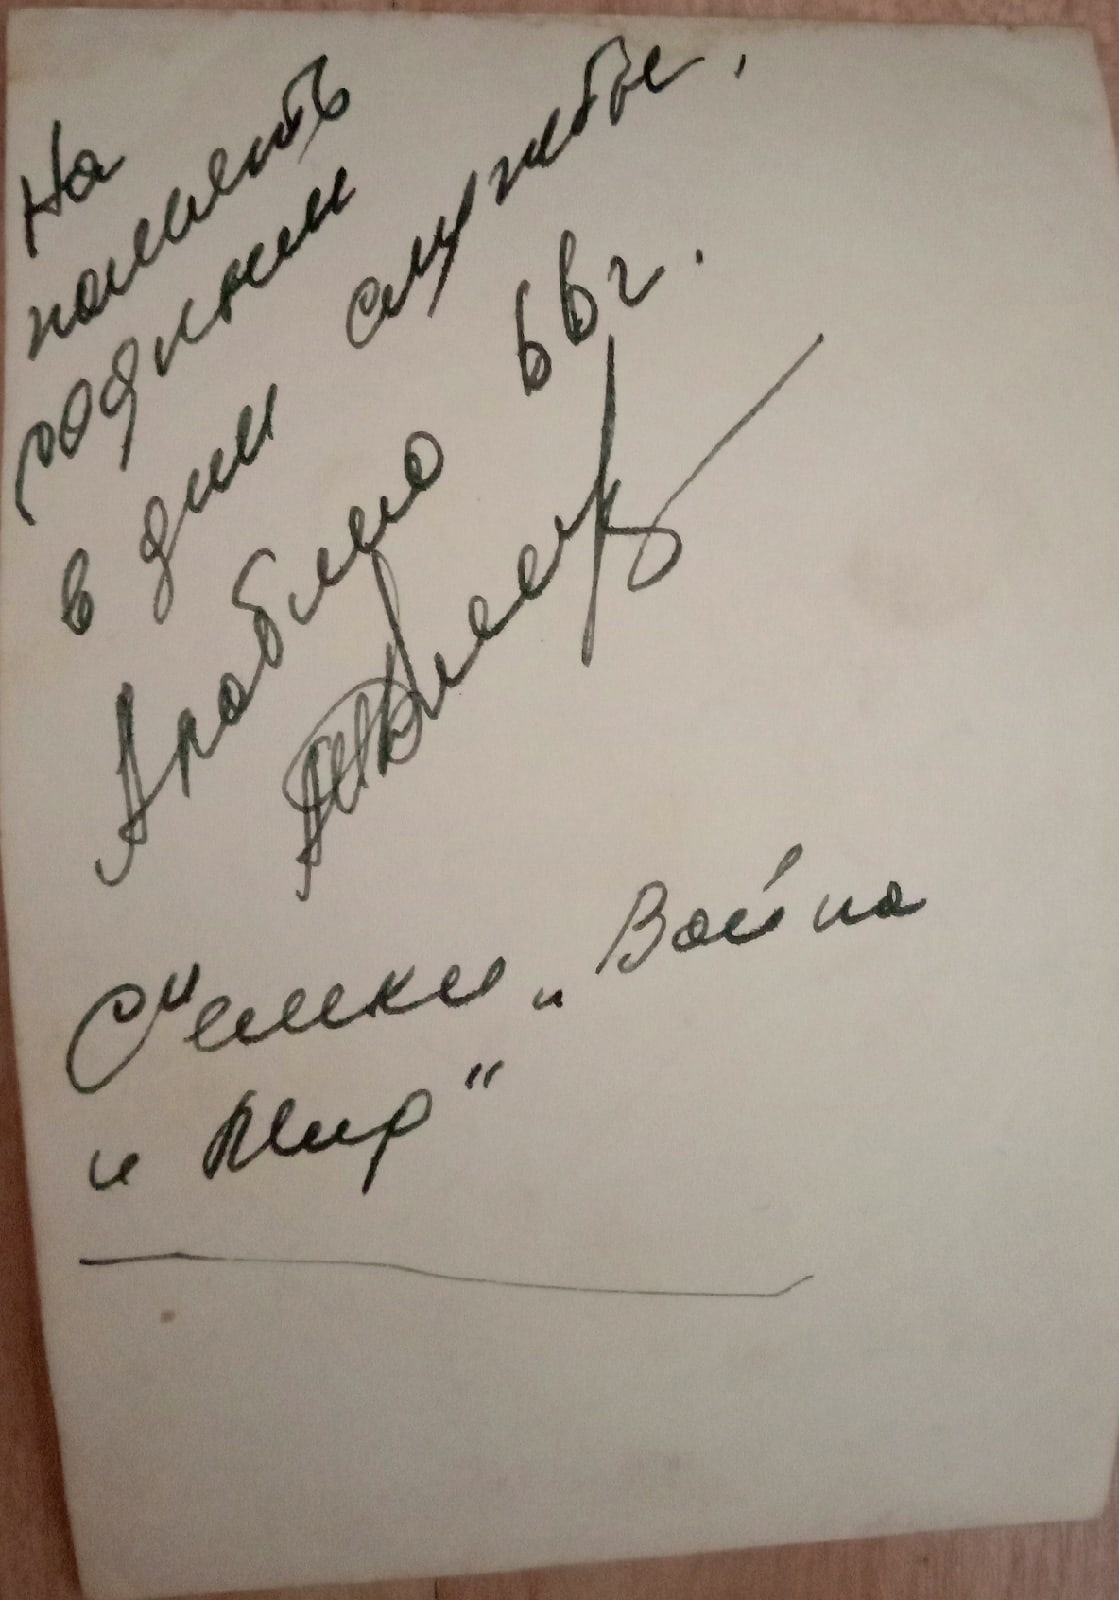 На
память
родним
в дни службы.
Араблино 66г.
Съемки „Война
и Мир“